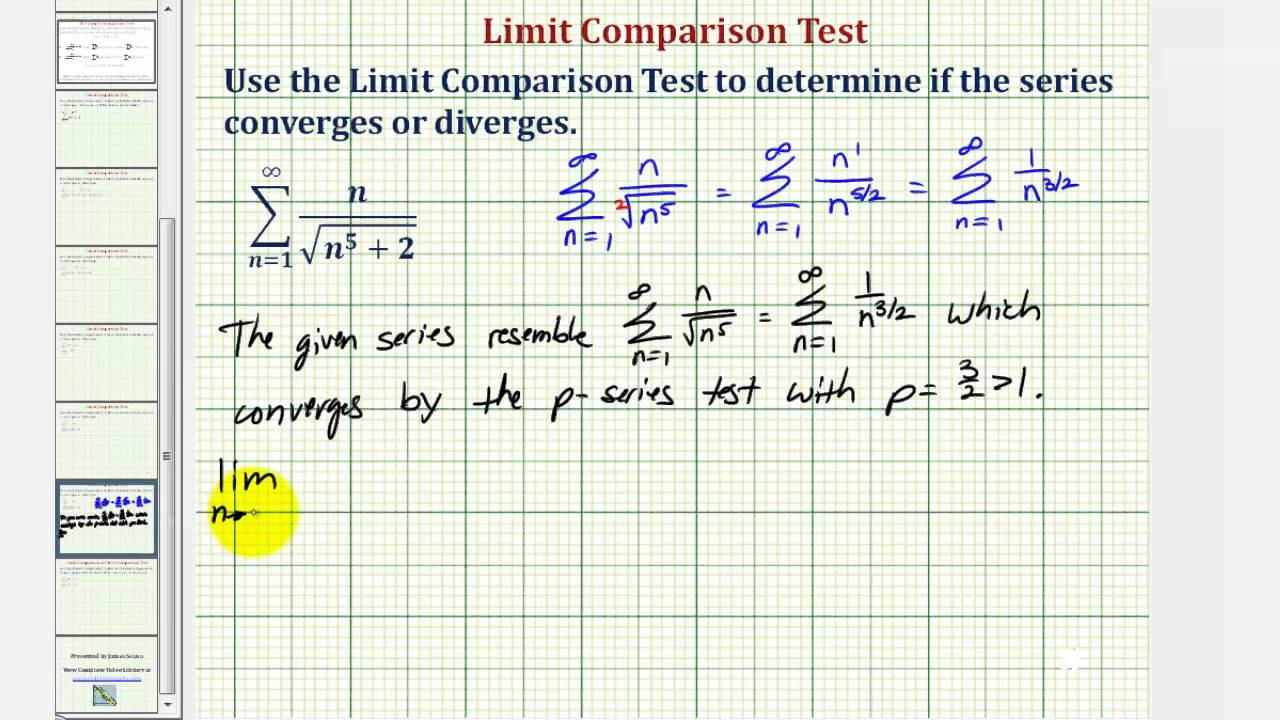 Limit Comparison Test
Use the Limit Comparison Test to determine if the series
converges or diverges.
∞ ∑ n=1 n / √(n⁵ + 2)
∞ ∑ n=1 n / ²√n⁵ = ∞ ∑ n=1 n¹ / n^5/2 = ∞ ∑ n=1 1 / n^3/2
The given series resemble ∞ ∑ n=1 n / √n⁵ = ∞ ∑ n=1 1 / n^3/2 which
converges by the p-series test with p = 3/2 > 1.
lim
n→
Presented by James Sousa